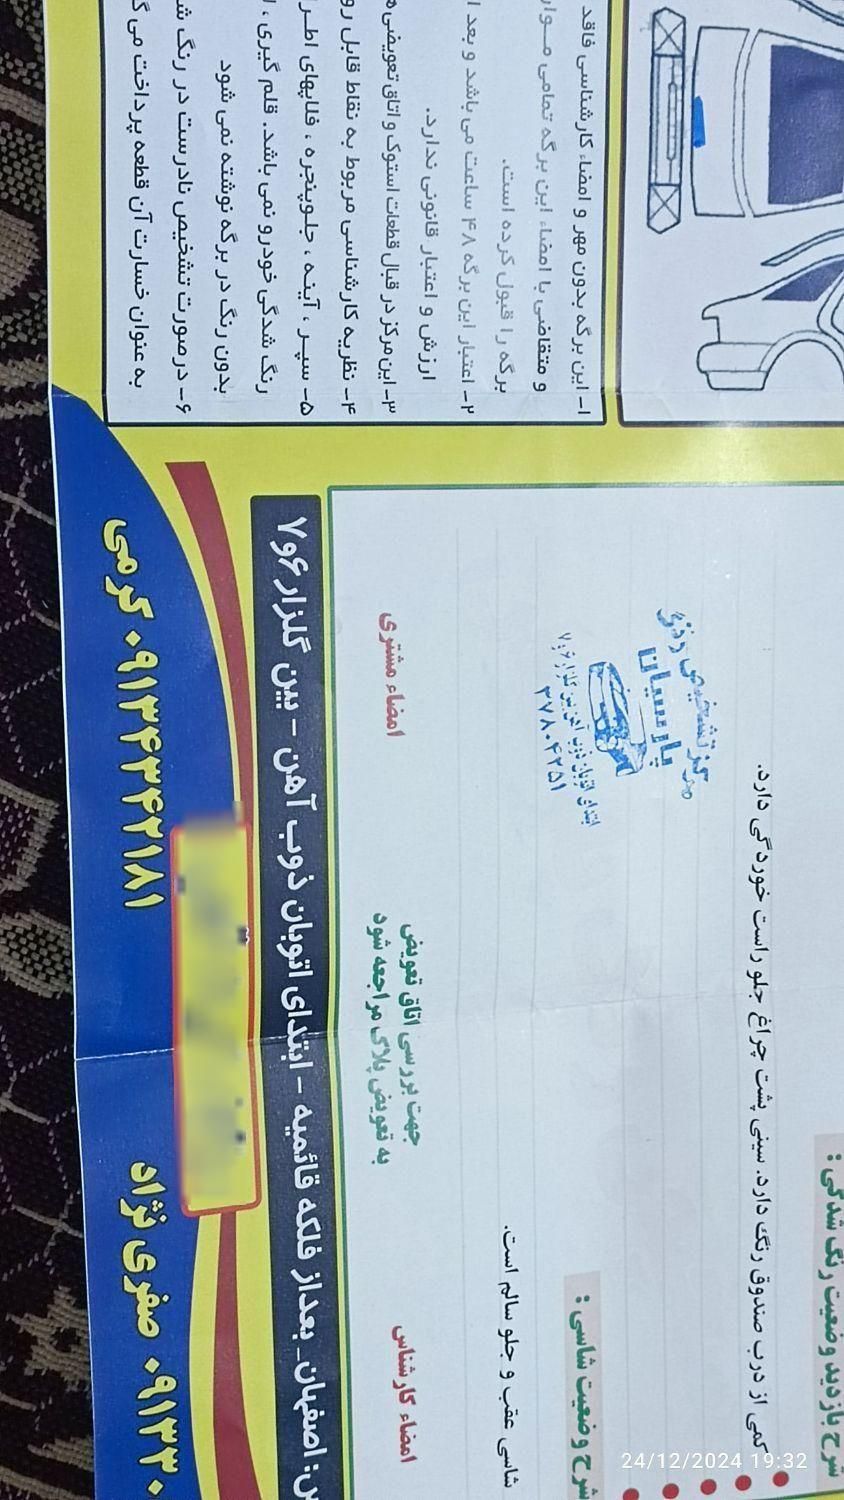 شرح بازدید وضعیت رنگ شدگی :
کمی از درب صندوق رنگ دارد. سینی پشت چراغ جلو راست خوردگی دارد.
مرکز تشخیص رنگ
پارسیان
ابتدای اتوبان ذوب آهن بین گلزار ۶و۷
۳۷۸۰۴۲۵۱
شرح وضعیت شاسی :
شاسی عقب و جلو سالم است.
امضاء کارشناس
جهت بررسی اتاق تعویض
به تعویض پلاک مراجعه شود
امضاء مشتری
۱- این برگه بدون مهر و امضاء کارشناسی فاقد
و متقاضی با امضاء این برگه تمامی
برگه را قبول کرده است.
۲- اعتبار این برگه ۴۸ ساعت می باشد و بعد
ارزش و اعتبار قانونی ندارد.
۳- این مرکز در قبال قطعات استوک و اتاق تعویضی
۴- نظریه کارشناسی مربوط به نقاط قابل
۵- سپر ، آینه ، جلوپنجره ، فلاپهای
رنگ شدگی خودرو نمی باشد. قلم گیری ،
بدون رنگ در برگه نوشته نمی شود
۶- درصورت تشخیص نادرست در رنگ
به عنوان خسارت آن قطعه پرداخت
س: اصفهان_ بعداز فلکه قائمیه - ابتدای اتوبان ذوب آهن - بین گلزار ۶و۷
۰۹۱۳۳۰ صفری نژاد
۰۹۱۳۴۳۴۲۱۸۱ کرمی
24/12/2024 19:32